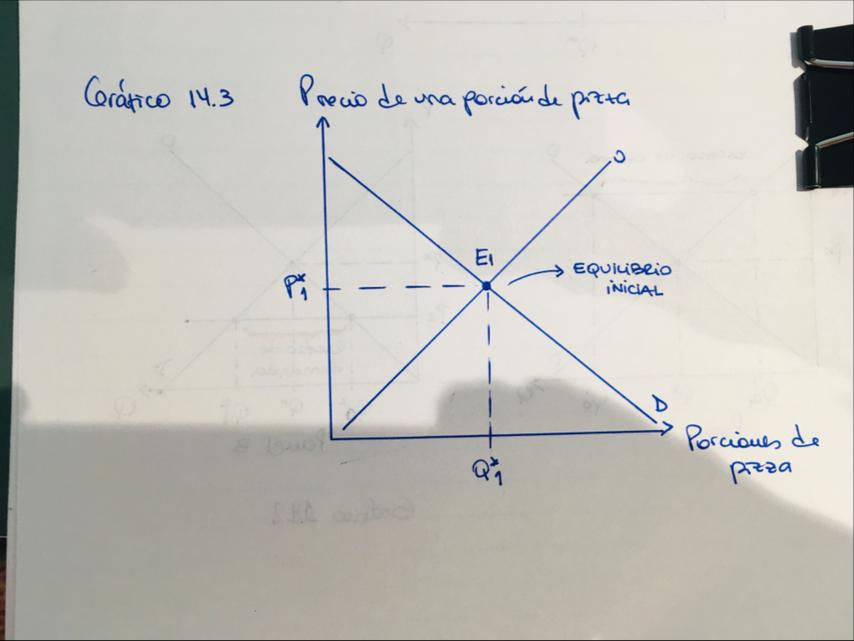 Gráfico 14.3
Precio de una porción de pizza
O
E1
EQUILIBRIO
INICIAL
P*1
D
Porciones de
pizza
Q*1